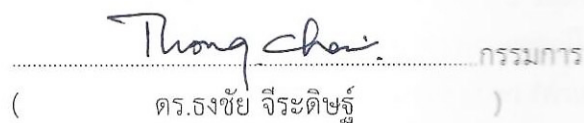 Thong Chai. กรรมการ
( ดร.ธงชัย จีระดิษฐ์ )